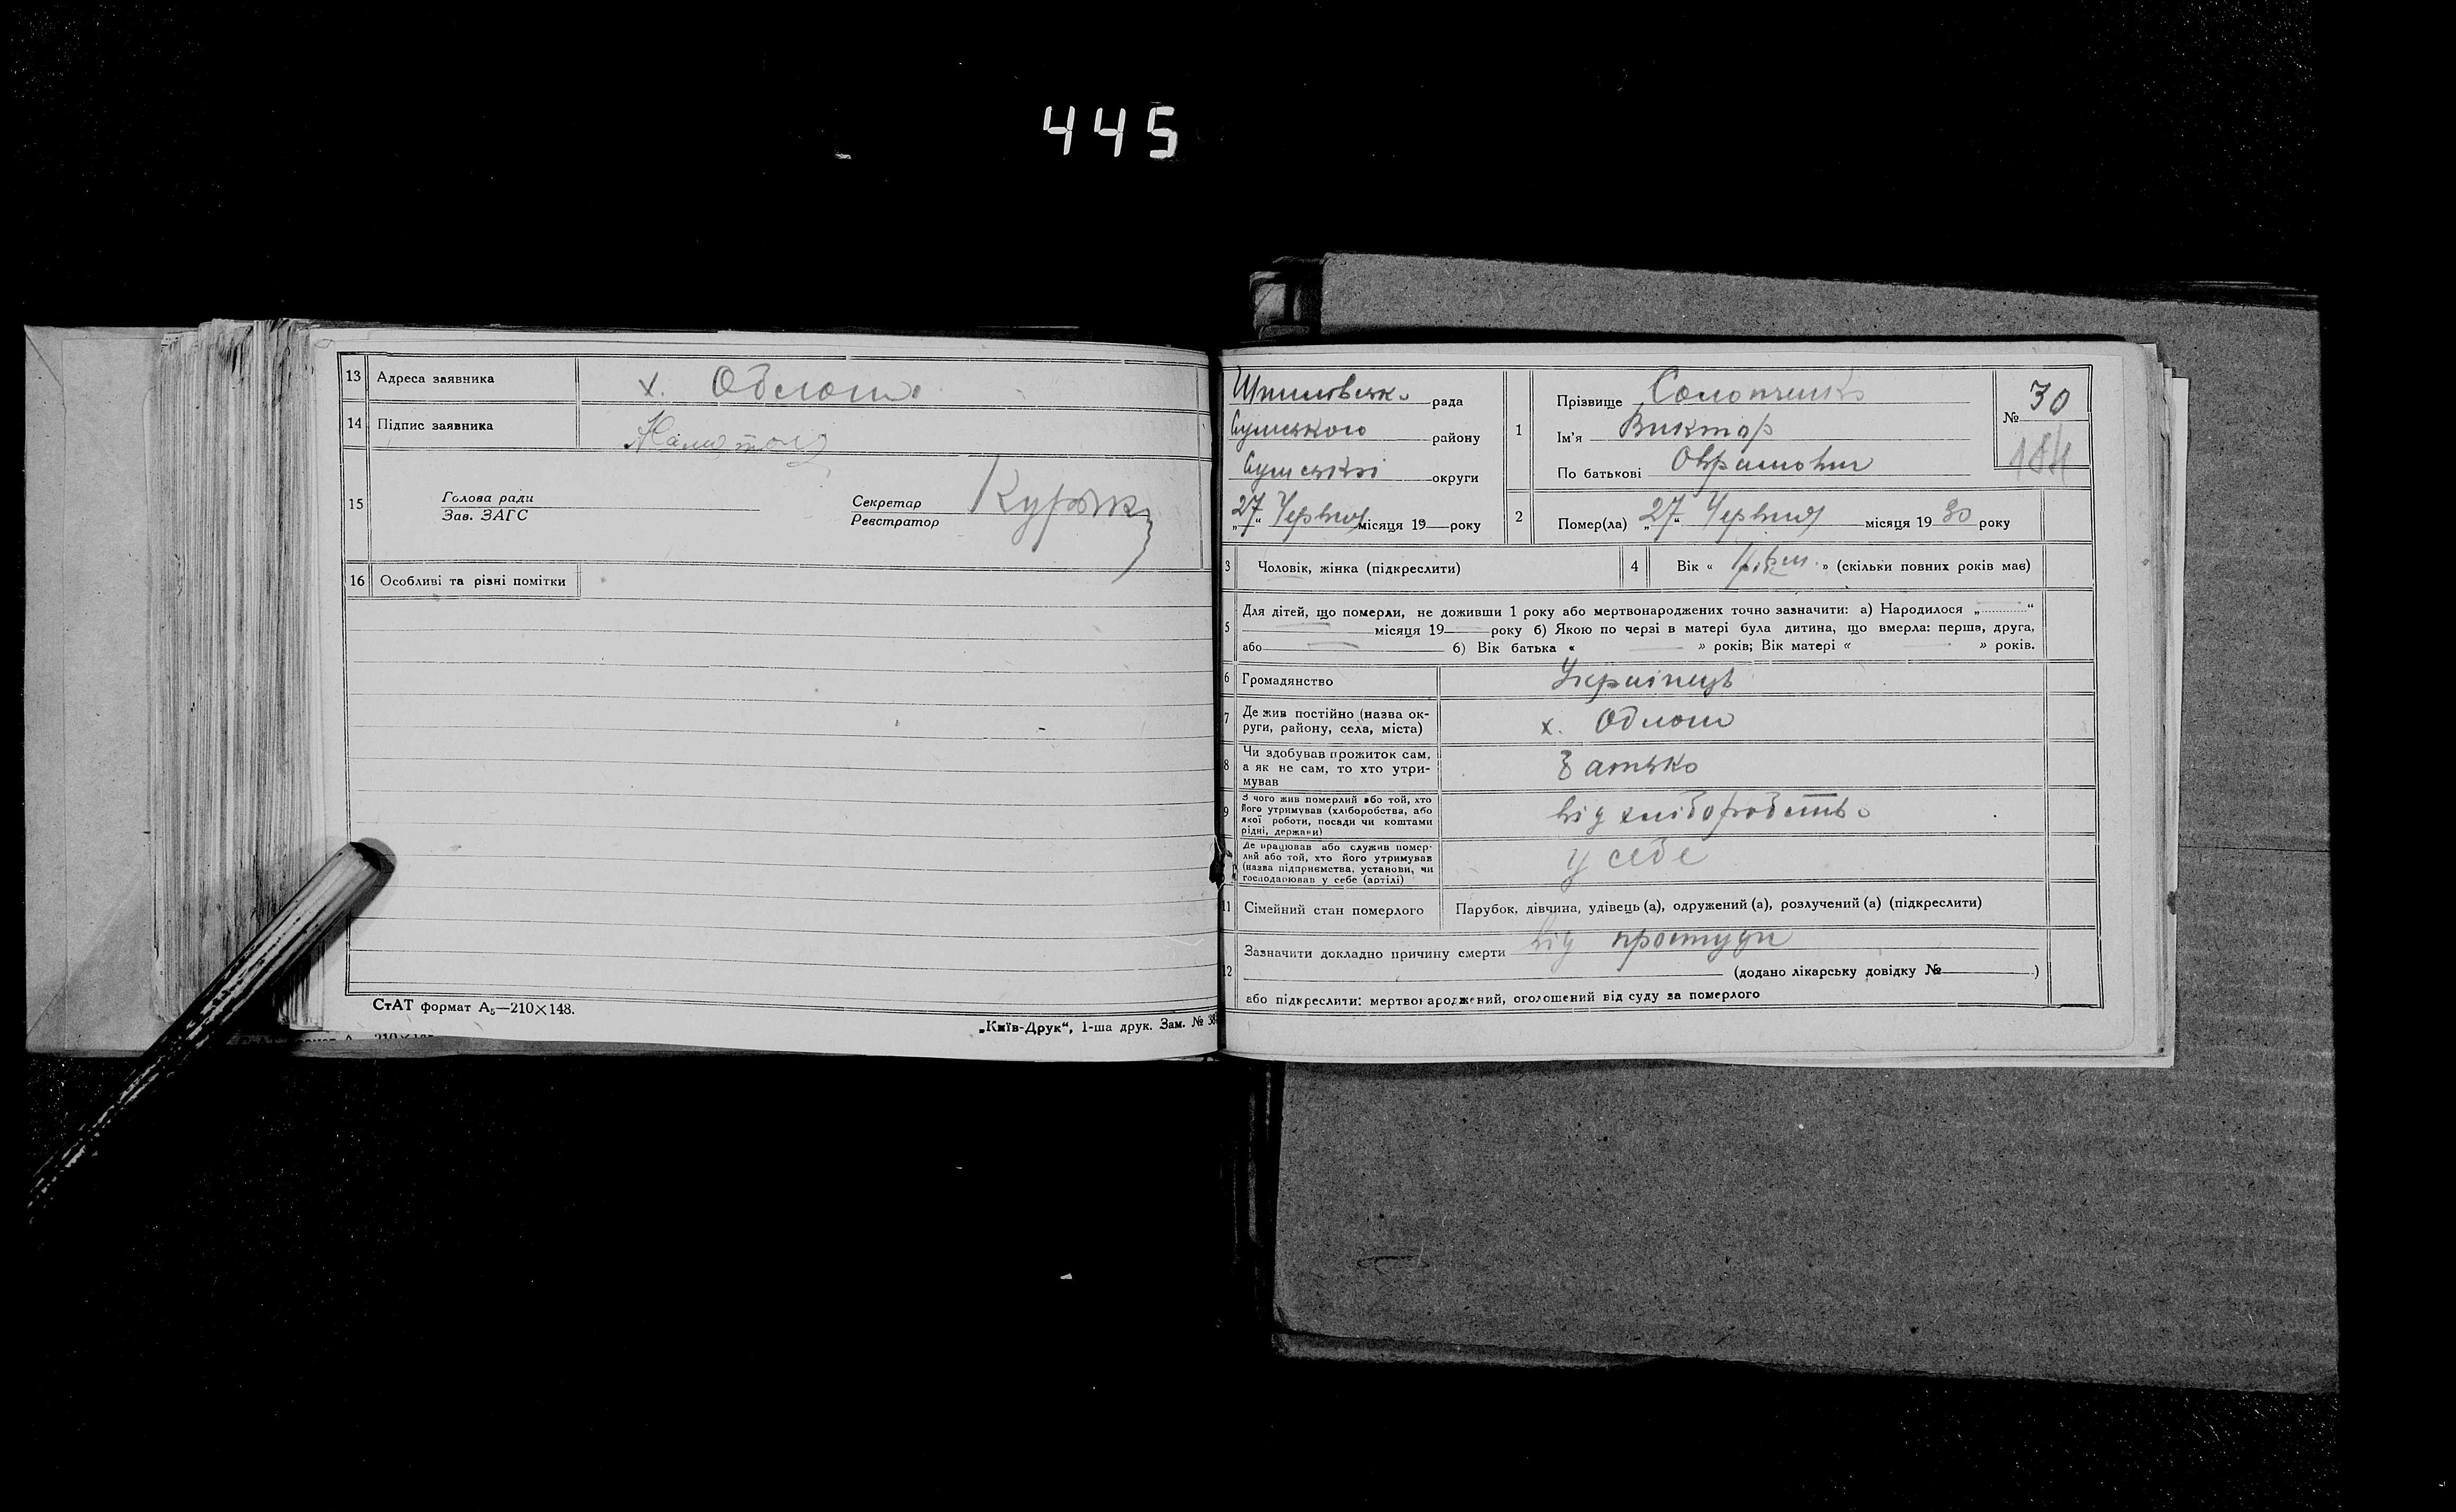 445
13 Адреса заявника х. Облоги
14 Підпис заявника
15 Голова ради
Зав. ЗАГС
Секретар
Реєстратор
16 Особливі та різні помітки
СтАТ формат А₅—210×148.
„Київ-Друк“, 1-ша друк. Зам. №
рада
Сумського району
Сумської округи
„27“ Червня місяця 19 року
1 Прізвище
Ім'я Виктор
По батькові
№ 30
184
2 Помер(ла) „27“ Червня місяця 19 30 року
3 Чоловік, жінка (підкреслити)
4 Вік « » (скільки повних років має)
5 Для дітей, що померли, не доживши 1 року або мертвонароджених точно зазначити: а) Народилося „ “
місяця 19 року б) Якою по черзі в матері була дитина, що вмерла: перша, друга,
або б) Вік батька « » років; Вік матері « » років.
6 Громадянство Українець
7 Де жив постійно (назва ок-
руги, району, села, міста) х. Облоги
8 Чи здобував прожиток сам,
а як не сам, то хто утри-
мував Батько
9 З чого жив померлий або той, хто
його утримував (хліборобства, або
якої роботи, посади чи коштами
рідні, держави) від хліборобство
Де працював або служив помер-
лий або той, хто його утримував
(назва підприємства, установи, чи
господарював у себе (артілі) у себе
11 Сімейний стан померлого Парубок, дівчина, удівець (а), одружений (а), розлучений (а) (підкреслити)
12 Зазначити докладно причину смерти від простуди
(додано лікарську довідку № )
або підкреслити: мертвонароджений, оголошений від суду за померлого